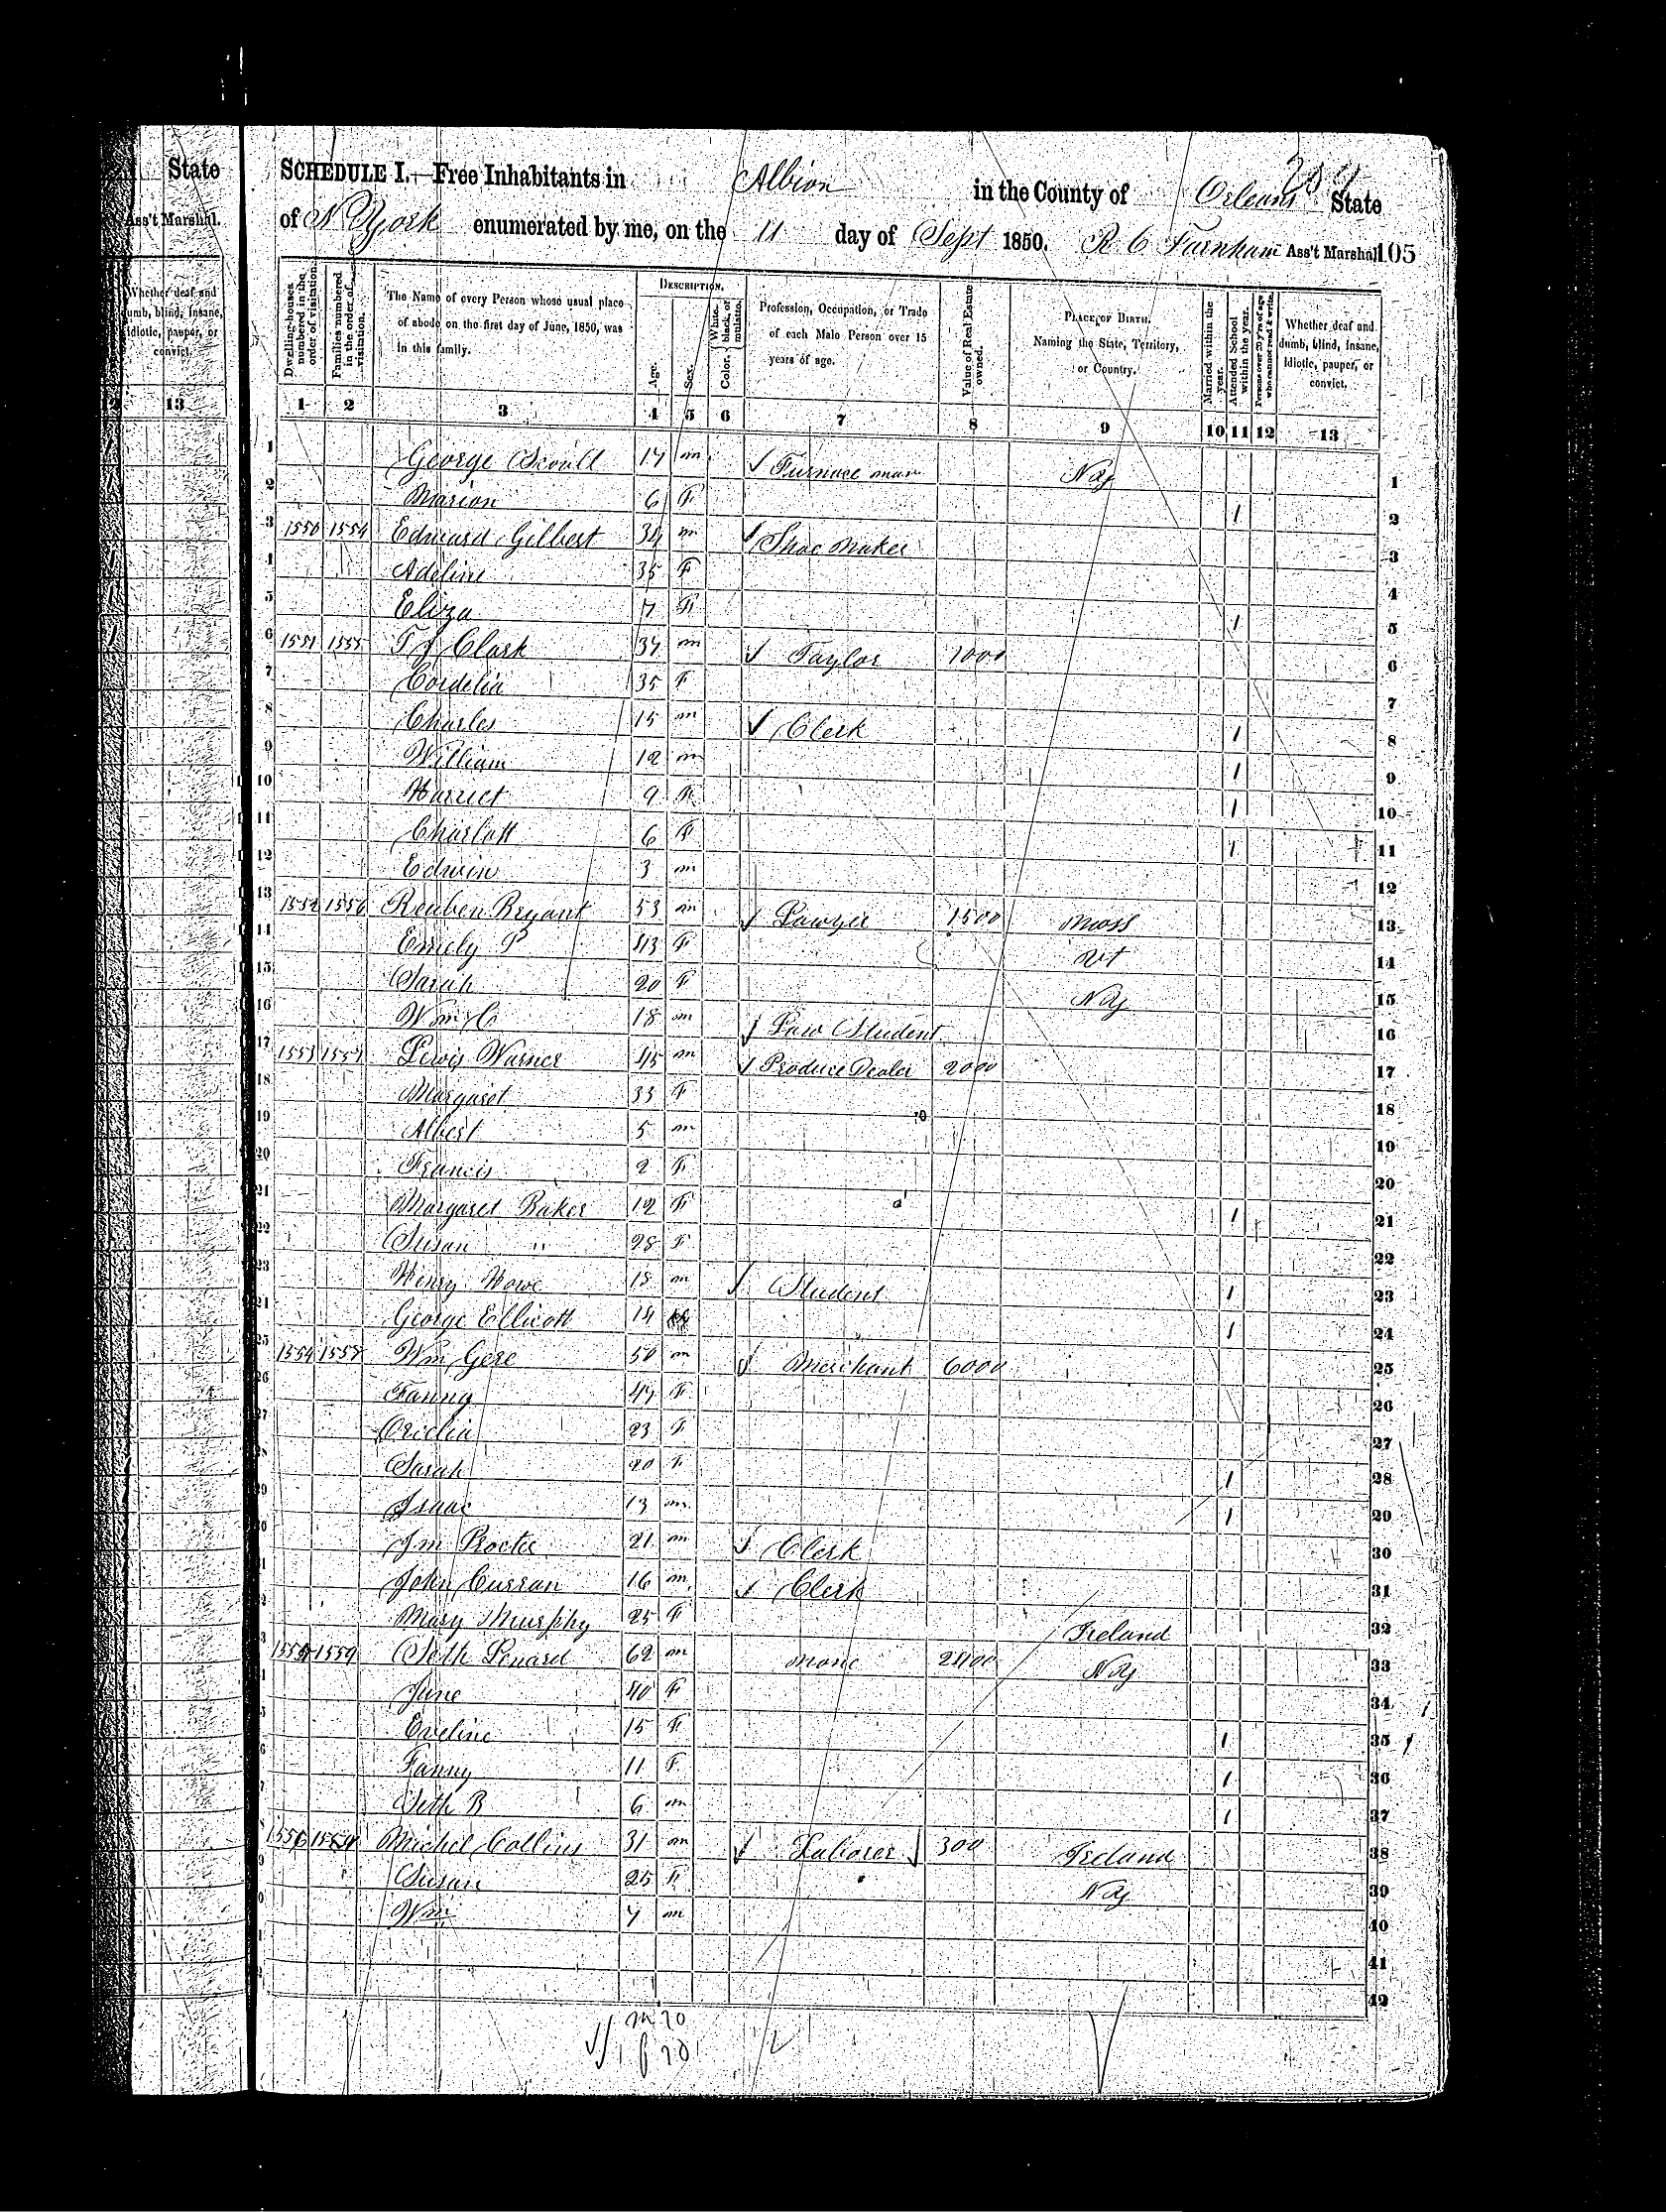 State
Ass't Marshal.
Whether deaf and
dumb, blind, insane,
idiotic, pauper, or
convict.
13
SCHEDULE I.—Free Inhabitants in Albion in the County of Orleans State
of N York enumerated by me, on the 11 day of Sept 1850. R C Farnham Ass't Marshal 105
Dwelling-houses numbered in the order of visitation.
Families numbered in the order of visitation.
The Name of every Person whose usual place of abode on the first day of June, 1850, was in this family.
DESCRIPTION.
Age.
Sex.
Color, White, black, or mulatto.
Profession, Occupation, or Trade of each Male Person over 15 years of age.
Value of Real Estate owned.
PLACE OF BIRTH. Naming the State, Territory, or Country.
Married within the year.
Attended School within the year.
Persons over 20 y'rs of age who cannot read & write.
Whether deaf and dumb, blind, insane, idiotic, pauper, or convict.
1 2 3 4 5 6 7 8 9 10 11 12 13
1 George 17 m Furnace man NY 1
2 Marion 6 F 1 2
3 1550 1554 Edward Gilbert 34 m Shoe Maker 3
4 Adeline 35 F 4
5 Eliza 7 F 1 5
6 1551 1555 T J Clark 37 m Taylor 1000 6
7 Cordelia 35 F 7
8 Charles 15 m Clerk 1 8
9 William 12 m 1 9
10 Harriet 9 F 1 10
11 Charlott 6 F 1 11
12 Edwin 3 m 12
13 1552 1556 Reuben Bryant 53 m Lawyer 1500 Mass 13
14 Emely P 43 F Vt 14
15 Sarah 20 F NY 15
16 Wm C 18 m Law Student 16
17 1553 1557 Lewis Warner 45 m Produce Dealer 2000 17
18 Margaret 33 F 18
19 Albert 5 m 19
20 Francis 2 F 20
21 Margaret Baker 12 F 1 21
22 Susan " 28 F 22
23 Henry Howe 18 m Student 1 23
24 George Ellicott 14 1 24
25 1554 1558 Wm Gere 50 m Merchant 6000 25
26 Fanny 47 F 26
27 23 F 27
28 Sarah 20 F 1 28
29 Isaac 13 m 1 29
30 J m Procter 21 m Clerk 30
31 John Curran 16 m Clerk 31
32 Mary Murphy 25 F Ireland 32
33 1555 1559 Seth Lenard 62 m none 2400 NY 33
Jane 40 F 34
Eveline 15 F 1 35
Fanny 11 F 1 36
Seth B 6 m 1 37
1556 Michel Collins 31 m Laborer 300 Ireland 38
Susan 25 F NY 39
Wm 7 m 40
41
42
m 20
f 20